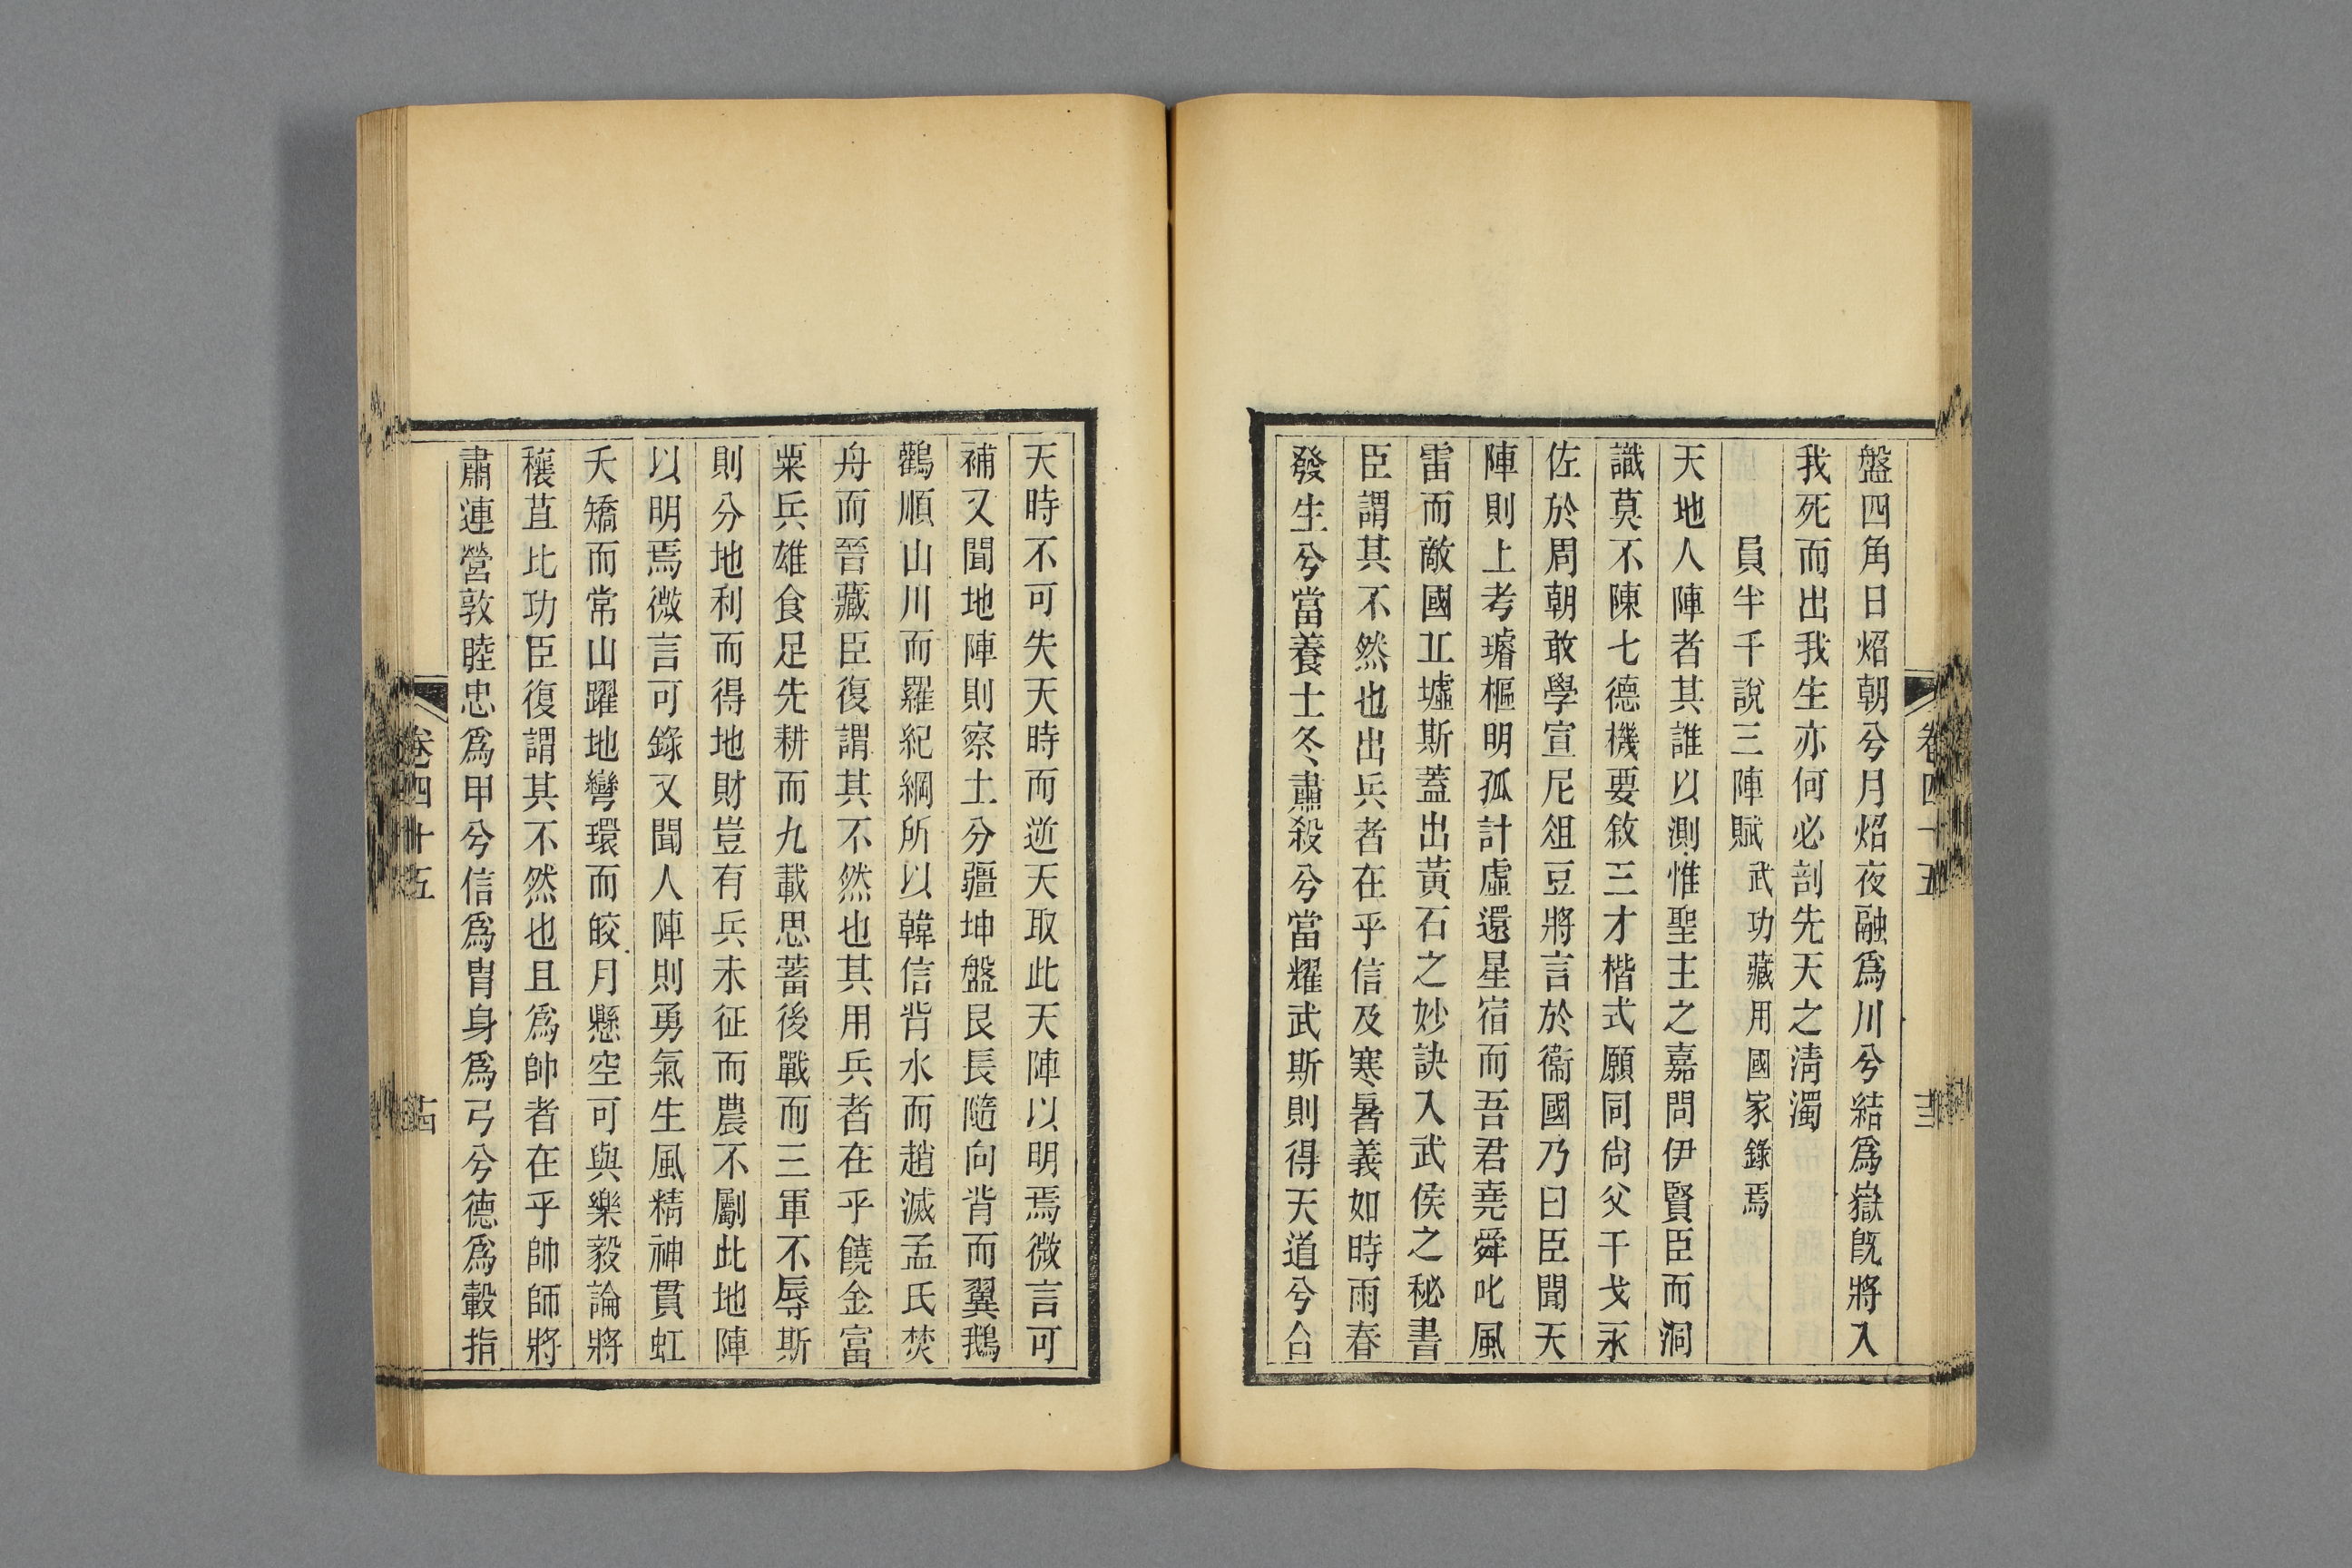 盤四角日炤朝兮月炤夜融爲川兮結爲嶽旣將入
我死而出我生亦何必剖先天之淸濁
員半千說三陣賦武功藏用國家錄焉
天地人陣者其誰以測惟聖主之嘉問伊賢臣而洞
識莫不陳七德機要敘三才楷式願同尙父干戈永
佐於周朝敢學宣尼俎豆將言於衞國乃曰臣聞天
陣則上考璿樞明孤計虛還星宿而吾君堯舜叱風
雷而敵國丠墟斯蓋出黃石之妙訣入武侯之秘書
臣謂其不然也出兵者在乎信及寒暑義如時雨春
發生兮當養士冬肅殺兮當耀武斯則得天道兮合
卷四十五
十三
天時不可失天時而逆天取此天陣以明焉微言可
補又聞地陣則察土分疆坤盤艮長隨向背而翼鵝
鸛順山川而羅紀綱所以韓信背水而趙滅孟氏焚
舟而晉藏臣復謂其不然也其用兵者在乎饒金富
粟兵雄食足先耕而九載思蓄後戰而三軍不辱斯
則分地利而得地財豈有兵未征而農不劚此地陣
以明焉微言可錄又聞人陣則勇氣生風精神貫虹
夭矯而常山躍地彎環而皎月懸空可與樂毅論將
穰苴比功臣復謂其不然也且爲帥者在乎帥師將
肅連營敦睦忠爲甲兮信爲胄身爲弓兮德爲彀指
卷四十五
十四